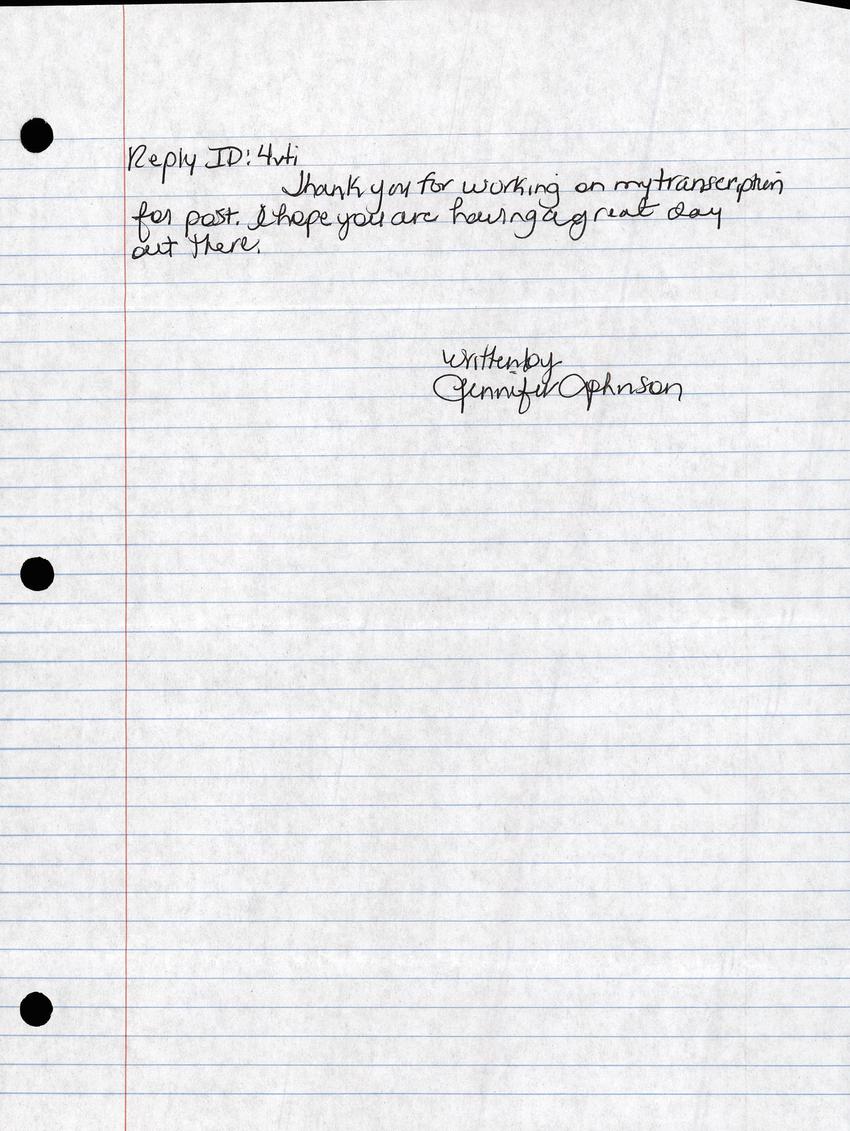 Reply ID: 4vti
Thank you for working on my transcription
for post. I hope you are having a great day
out there.
Written by
Jennifer